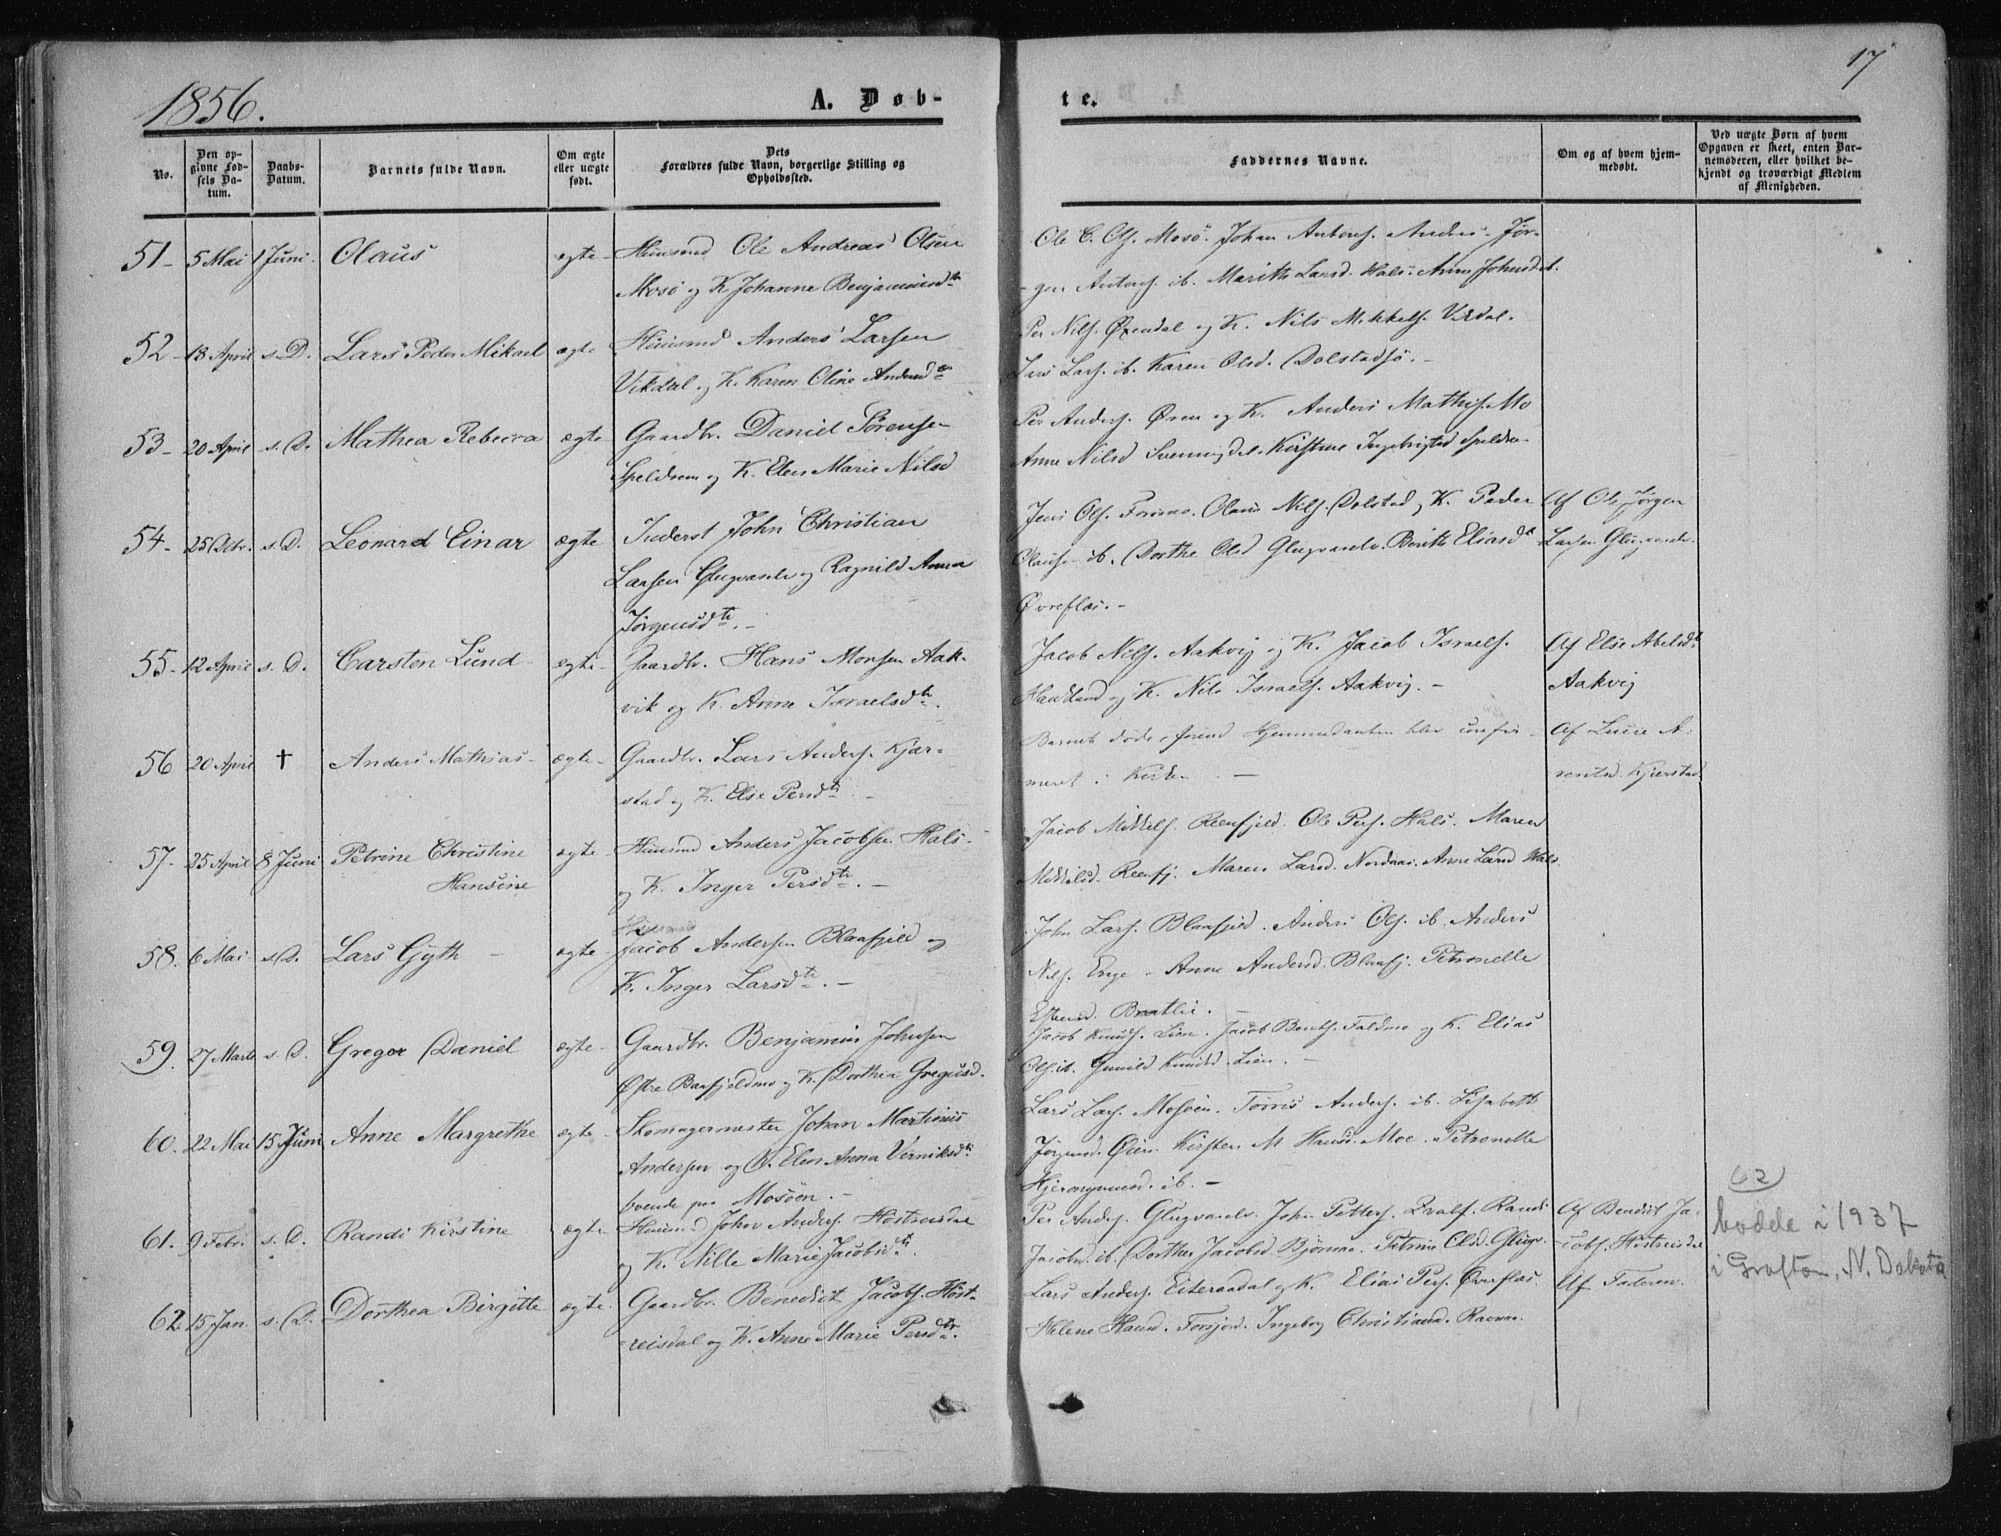 1856.
A. Døb-
te.
17
No.
Den op-
givne Fød-
sels Da-
tum.
Daabs-
Datum.
Barnets fulde Navn.
Om ægte
eller uægte
født.
Dets
Forældres fulde Navn, borgerlige Stilling og
Opholdssted.
Faddernes Navne.
Om og af hvem hjem-
medøbt.
Ved uægte Børn af hvem
Opgaven er skeet, enten Bar-
nemoderen, eller hvilket be-
kjendt og troværdigt Medlem
af Menigheden.
51- 5 Mai 1 Juni. Olaus ægte- Huusmd Ole Andreas Olsen
Mosö og K Johanne Benjaminsdtr
Ole C. Ols. Mosö. Johan Antons. Anders Jör-
gen Antons. ib. Marith Larsd. Hals. Anne Johnsd ib.
52- 18 April s. D. Lars Peder Mikael ægte Huusmd Anders Larsen
Vikdal og K. Karen Oline Andersdtr
Per Nils. Øxendal og K. Nils Mikkels. Vikdal.
Lars Lars. ib. Karen Olsd. Dolstadsö. -
53- 20 April s. D. Mathea Rebecca ægte Gaardbr. Daniel Sörensen
Speldrem og K. Elen Marie Nilsd
Per Anders. Øren og K. Anders Mathis. Mo
Anne Nilsd Svenningdal. Kirstine Ingebrigtsd Speldrem
54- 25 Dcbr. s. D. Leonard Einar ægte Inderst John Christian
Larsen Glugvaselv og Ragnild Anna
Jörgensdtr. -
Jens Ols. Forsmo. Olaus Nils. Dolstad og K. Peder
Olaus. ib. Dorthe Olsd Glugvaselv. Berith Eliasdtr
Øvreflæs. -
Af Ole Jørgen
Larsen Glugvaselv.
55- 12 April s. D. Carsten Lund ægte- Gaardbr. Hans Monsen Aak-
vik og K. Anne Israelsdtr.
Jacob Nils. Aakvig og K. Jacob Israels.
Haukland og K. Nils Israels. Aakvig. -
Af Else Abelsdtr
Aakvig
56 20 April † Anders Mathias- ægte- Gaardbr. Lars Anders. Kjær-
stad og K. Else Persdtr. -
Barnet döde, førend Hjemmedaaben blev confir-
meret i Kirken. -
Af Lucie A-
rentsd. Kjærstad
57- 25 April 8 Juni Petrine Christine
Hansine
ægte- Huusmd Anders Jacobsen Hals-
og K. Inger Persdtr. -
Jacob Mikkels. Reenfjeld. Ole Pers. Hals. Maren
Mikkelsd. Reenfj. Maren Larsd. Nordnæs. Anne Larsd Hals.
58. 6 Mai s. D. Lars Gyth - ægte- Huusmand
Jacob Andersen Blaafjeld og
K. Inger Larsdtr. -
John Lars. Blaafjeld. Anders Ols. ib. Anders
Nils. Enge - Anne Andersd. Blaafj. Petronelle
Bratlie. -
59. 27 Marts s. D. Greger Daniel ægte- Gaardbr. Benjamin Johnsen
Østre Baafjeldmo og K. Dorthea Gregusd.
Jacob Knuds. Lien. Jacob Bents. Faldmo og K. Elias
Ols. ib. Gunild Knudsd. Lien. -
60. 22 Mai 15 Juni Anne Margrethe ægte- Skomagermester Johan Martinus
Andersen og K. Elen Anna Verniksdtr
boende paa Mosöen. -
Lars Lars. Mosöen. Törris Anders. ib. Lisabeth
Jörgensd. Øien. Kirsten M Hansd. Moe. Petronelle
Hjeronymusd. ib. -
61. 9 Febr. s. D. Randi Kirstine ægte- Huusmd John Anders. Höstreisdal
og K. Nille Marie Jacobsdtr.
Per Anders. Glugvaselv. John Petters. Randi
Jacobsd. ib. Dorthea Jacobsd. Björnaa. Petrine Olsd. Glugv.
Af Bendict Ja-
cobs. Höstreisdal
62. 15 Jan. s. D. Dorthea Birgitte ægte- Gaardbr. Benedict Jacobs. Höst-
reisdal og K. Anne Marie Persdtr.
Lars Anders. Eiteraadal og K. Elias Pers. Øvreflæs.
Helene Hansd. Forsjord. Ingeborg Christiansd. Ravnaa.
Af Faderen.
62
bodde i 1937
i Grafton, N. Dakota